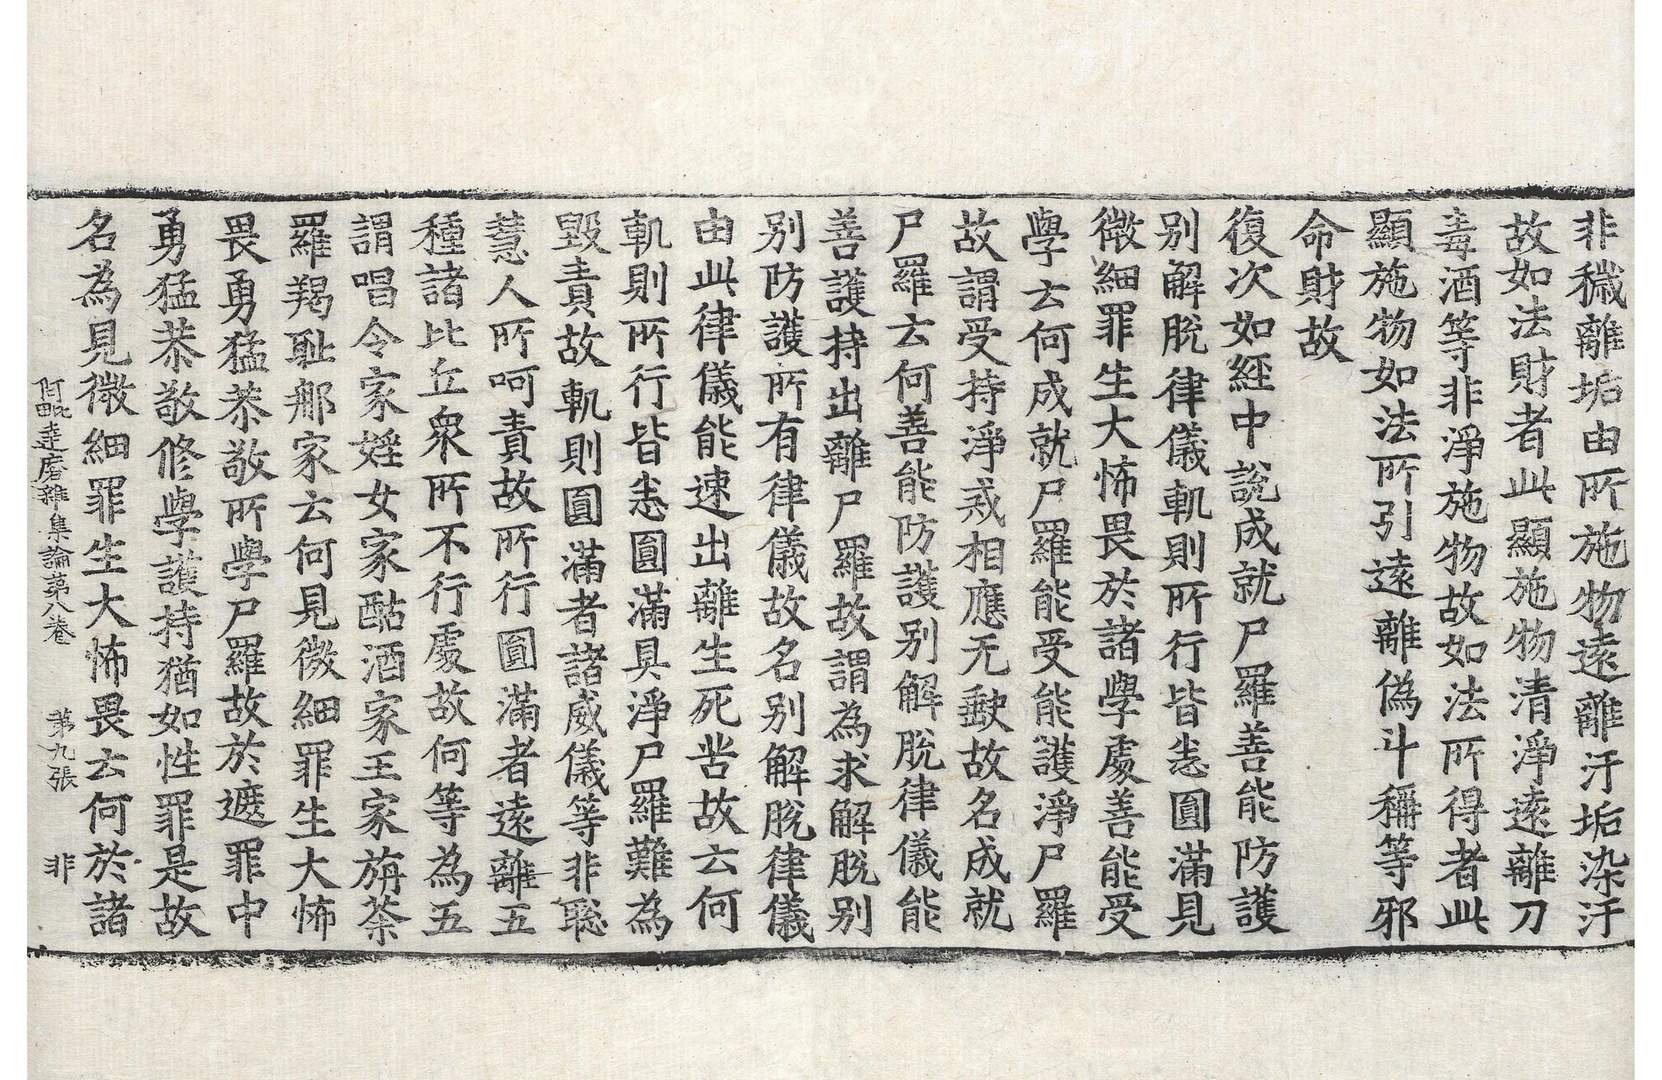 非穢離垢由所施物遠離汙垢染汙
故如法財者此顯施物清淨遠離刀
毒酒等非淨施物故如法所得者此
顯施物如法所引遠離偽斗稱等邪
命財故
復次如經中說成就尸羅善能防護
別解脫律儀軌則所行皆悉圓滿見
微細罪生大怖畏於諸學處善能受
學云何成就尸羅能受能護淨尸羅
故謂受持淨戒相應无缺故名成就
尸羅云何善能防護別解脫律儀能
善護持出離尸羅故謂為求解脫別
別防護所有律儀故名別解脫律儀
由此律儀能速出離生死苦故云何
軌則所行皆悉圓滿具淨尸羅難為
毀責故軌則圓滿者諸威儀等非聡
慧人所呵責故所行圓滿者遠離五
種諸比丘衆所不行處故何等為五
謂唱令家婬女家酤酒家王家旃荼
羅羯耻那家云何見微細罪生大怖
畏勇猛恭敬所學尸羅故於遮罪中
勇猛恭敬修學護持猶如性罪是故
名為見微細罪生大怖畏云何於諸
阿毗達磨雜集論第八卷 第九張 非